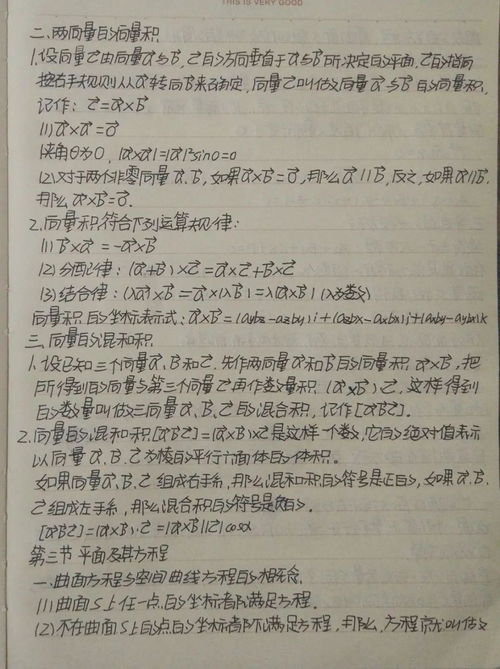 THIS IS VERY GOOD
二、两向量的向量积
1.设向量c⃗由向量a⃗与b⃗,c⃗的方向垂直于a⃗与b⃗所决定的平面,c⃗的指向
按右手规则从a⃗转向b⃗来确定,向量c⃗叫做向量a⃗与b⃗的向量积,
记作:c⃗=a⃗×b⃗
(1)a⃗×a⃗=0⃗
夹角θ为0,|a⃗×a⃗|=|a⃗|²sin0=0
(2)对于两个非零向量a⃗、b⃗,如果a⃗×b⃗=0⃗,那么a⃗∥b⃗,反之,如果a⃗∥b⃗,
那么a⃗×b⃗=0⃗.
2.向量积符合下列运算规律:
(1)b⃗×a⃗=-a⃗×b⃗
(2)分配律:(a⃗+b⃗)×c⃗=a⃗×c⃗+b⃗×c⃗
(3)结合律:(λa⃗)×b⃗=a⃗×(λb⃗)=λ(a⃗×b⃗)(λ为数)
向量积的坐标表示式:a⃗×b⃗=(aybz-azby)i+(azbx-axbz)j+(axby-aybx)k
三、向量的混和积.
1.设已知三个向量a⃗、b⃗和c⃗.先作两向量a⃗和b⃗的向量积a⃗×b⃗,把
所得到的向量与第三个向量c⃗再作数量积(a⃗×b⃗)c⃗,这样得到
的数量叫做三向量a⃗、b⃗、c⃗的混合积,记作[a⃗b⃗c⃗].
2.向量的混和积[a⃗b⃗c⃗]=(a⃗×b⃗)×c⃗是这样一个数,它的绝对值表示
以向量a⃗、b⃗、c⃗为棱的平行六面体的体积。
如果向量a⃗、b⃗、c⃗组成右手系,那么混和积的符号是正的,如果a⃗、b⃗、
c⃗组成左手系,那么混合积的符号是负的。
[a⃗b⃗c⃗]=(a⃗×b⃗)·c⃗=|a⃗×b⃗||c⃗|cosα
第三节 平面及其方程
一、曲面方程与空间曲线方程的概念.
(1)曲面S上任一点的坐标都满足方程.
(2)不在曲面S上的点的坐标都不满足方程,那么,方程就叫做